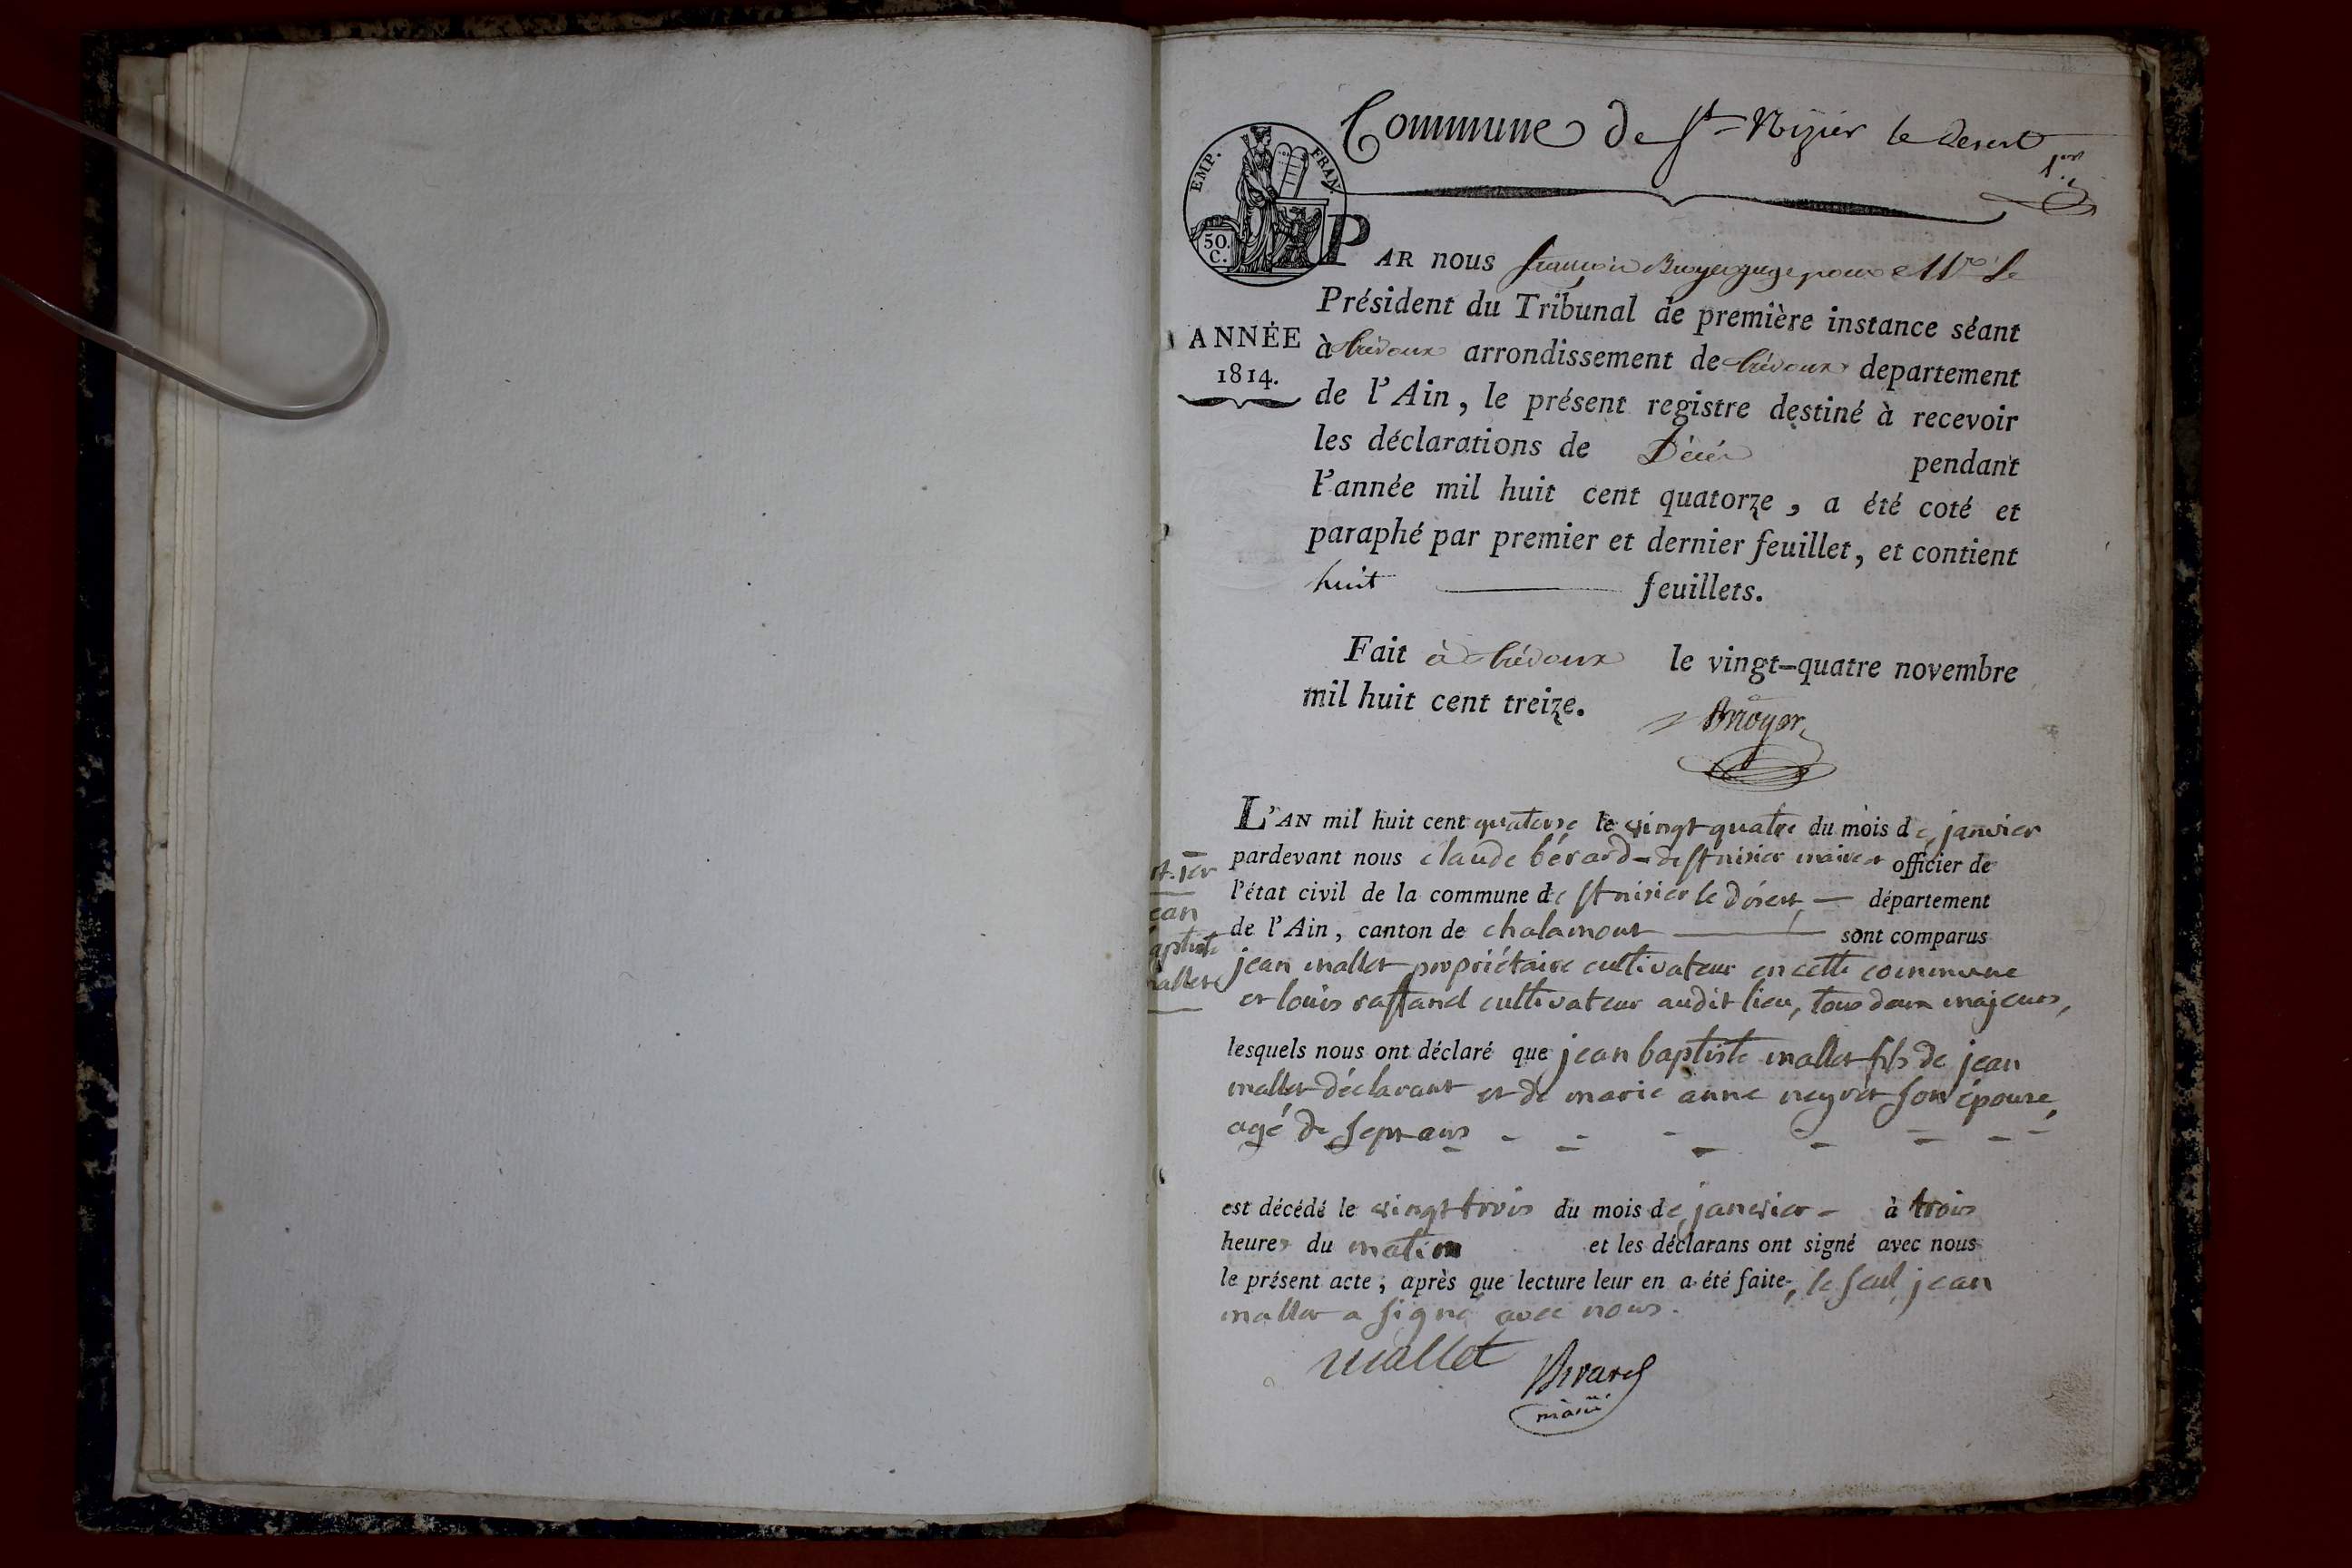 Commune de St Nizier le Desert
1er
EMP. FRAN.
50.
C.
PAR nous françois Bruyer juge pour Mr Le
Président du Tribunal de première instance séant
ANNÉE
1814.
à trévoux arrondissement de trévoux departement
de l'Ain, le présent registre destiné à recevoir
les déclarations de Décés pendant
l'année mil huit cent quatorze, a été coté et
paraphé par premier et dernier feuillet, et contient
huit feuillets.
Fait à trévoux le vingt-quatre novembre
mil huit cent treize.
L'AN mil huit cent quatorse le vingt quatre du mois de janvier
pardevant nous claude bérard de st nisier maire et officier de
l'état civil de la commune de st nisier le désert — département
de l'Ain, canton de chalamont — sont comparus
jean mallet propriétaire cultivateur en cette commune
et louis cultivateur audit lieu, tous deux majeurs,
n. 1er
ean
aptiste
mallet
lesquels nous ont déclaré que jean baptiste mallet fils de jean
mallet déclarant et de marie anne neyret son épouse,
agé de sept ans
est décédé le vingt trois du mois de janvier - à trois
heures du matin et les déclarans ont signé avec nous
le présent acte, après que lecture leur en a été faite, le seul jean
mallet a signé avec nous.
mallet Berard
maire